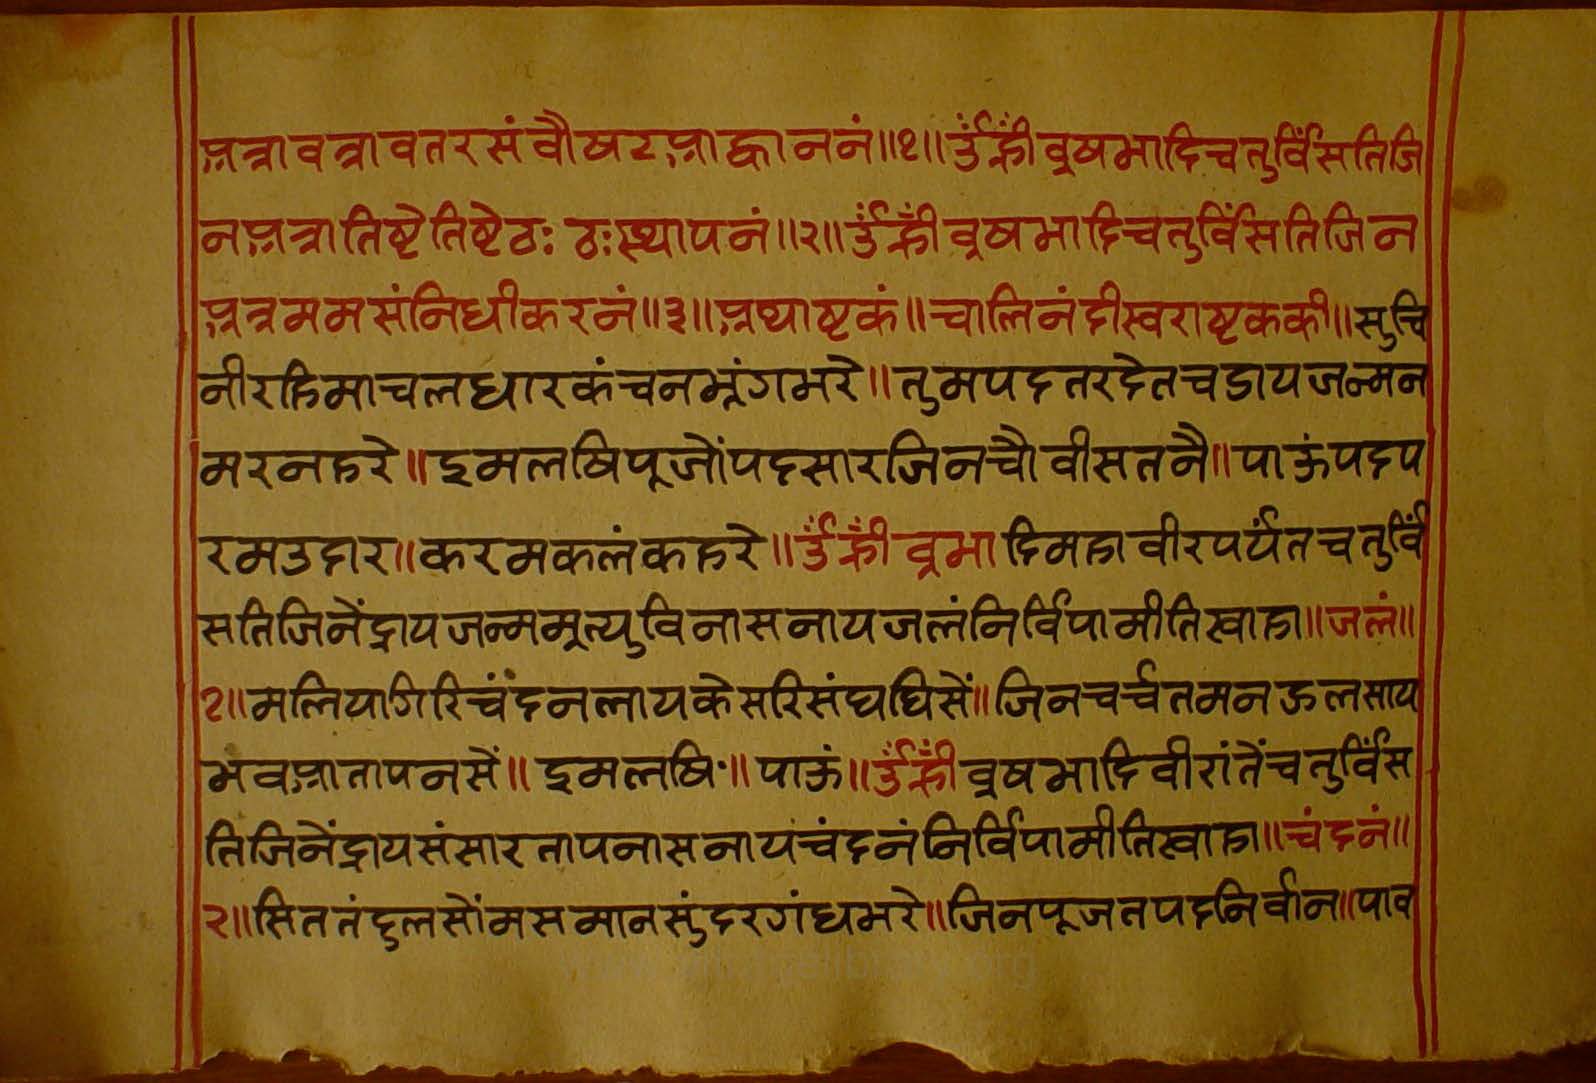 अत्रावत्रावतरसंवौषटआह्वाननं॥१॥ॐह्रींव्रषभादिचतुर्विंसतिजि
नअत्रातिष्टेतिष्टेठःठःस्थापनं॥२॥ॐह्रींव्रषभादिचतुर्विंसतिजिन
अत्रममसंनिधीकरनं॥३॥अथाष्टकं॥चालिनंदीस्वराष्टककी॥सुचि
नीरहिमाचलधारकंचनभ्रंगभरे॥तुमपदतरदेतचडायजन्मन
मरनहरे॥इमलषिपूजोंपदसारजिनचौवीसतनै॥पाऊंपदप
रमउदार॥करमकलंकहरे॥ॐह्रींव्रभादिमहावीरपर्यंतचतुर्विं
सतिजिनेंद्रायजन्ममृत्युविनासनायजलंनिर्विपामीतिस्वाहा॥जलं॥
१॥मलियागिरिचंदनलायकेसरिसंघघिसें॥जिनचर्चतमनऊलसाय
भवआतापनसें॥इमलषि॰॥पाऊं॥ॐह्रींव्रषभादिवीरांतेंचतुर्विंस
तिजिनेंद्रायसंसारतापनासनायचंदनंनिर्विपामीतिस्वाहा॥चंदनं॥
२॥सिततंदुलसोंमसमानसुंदरगंधभरे॥जिनपूजतपदनिर्वान॥पाव